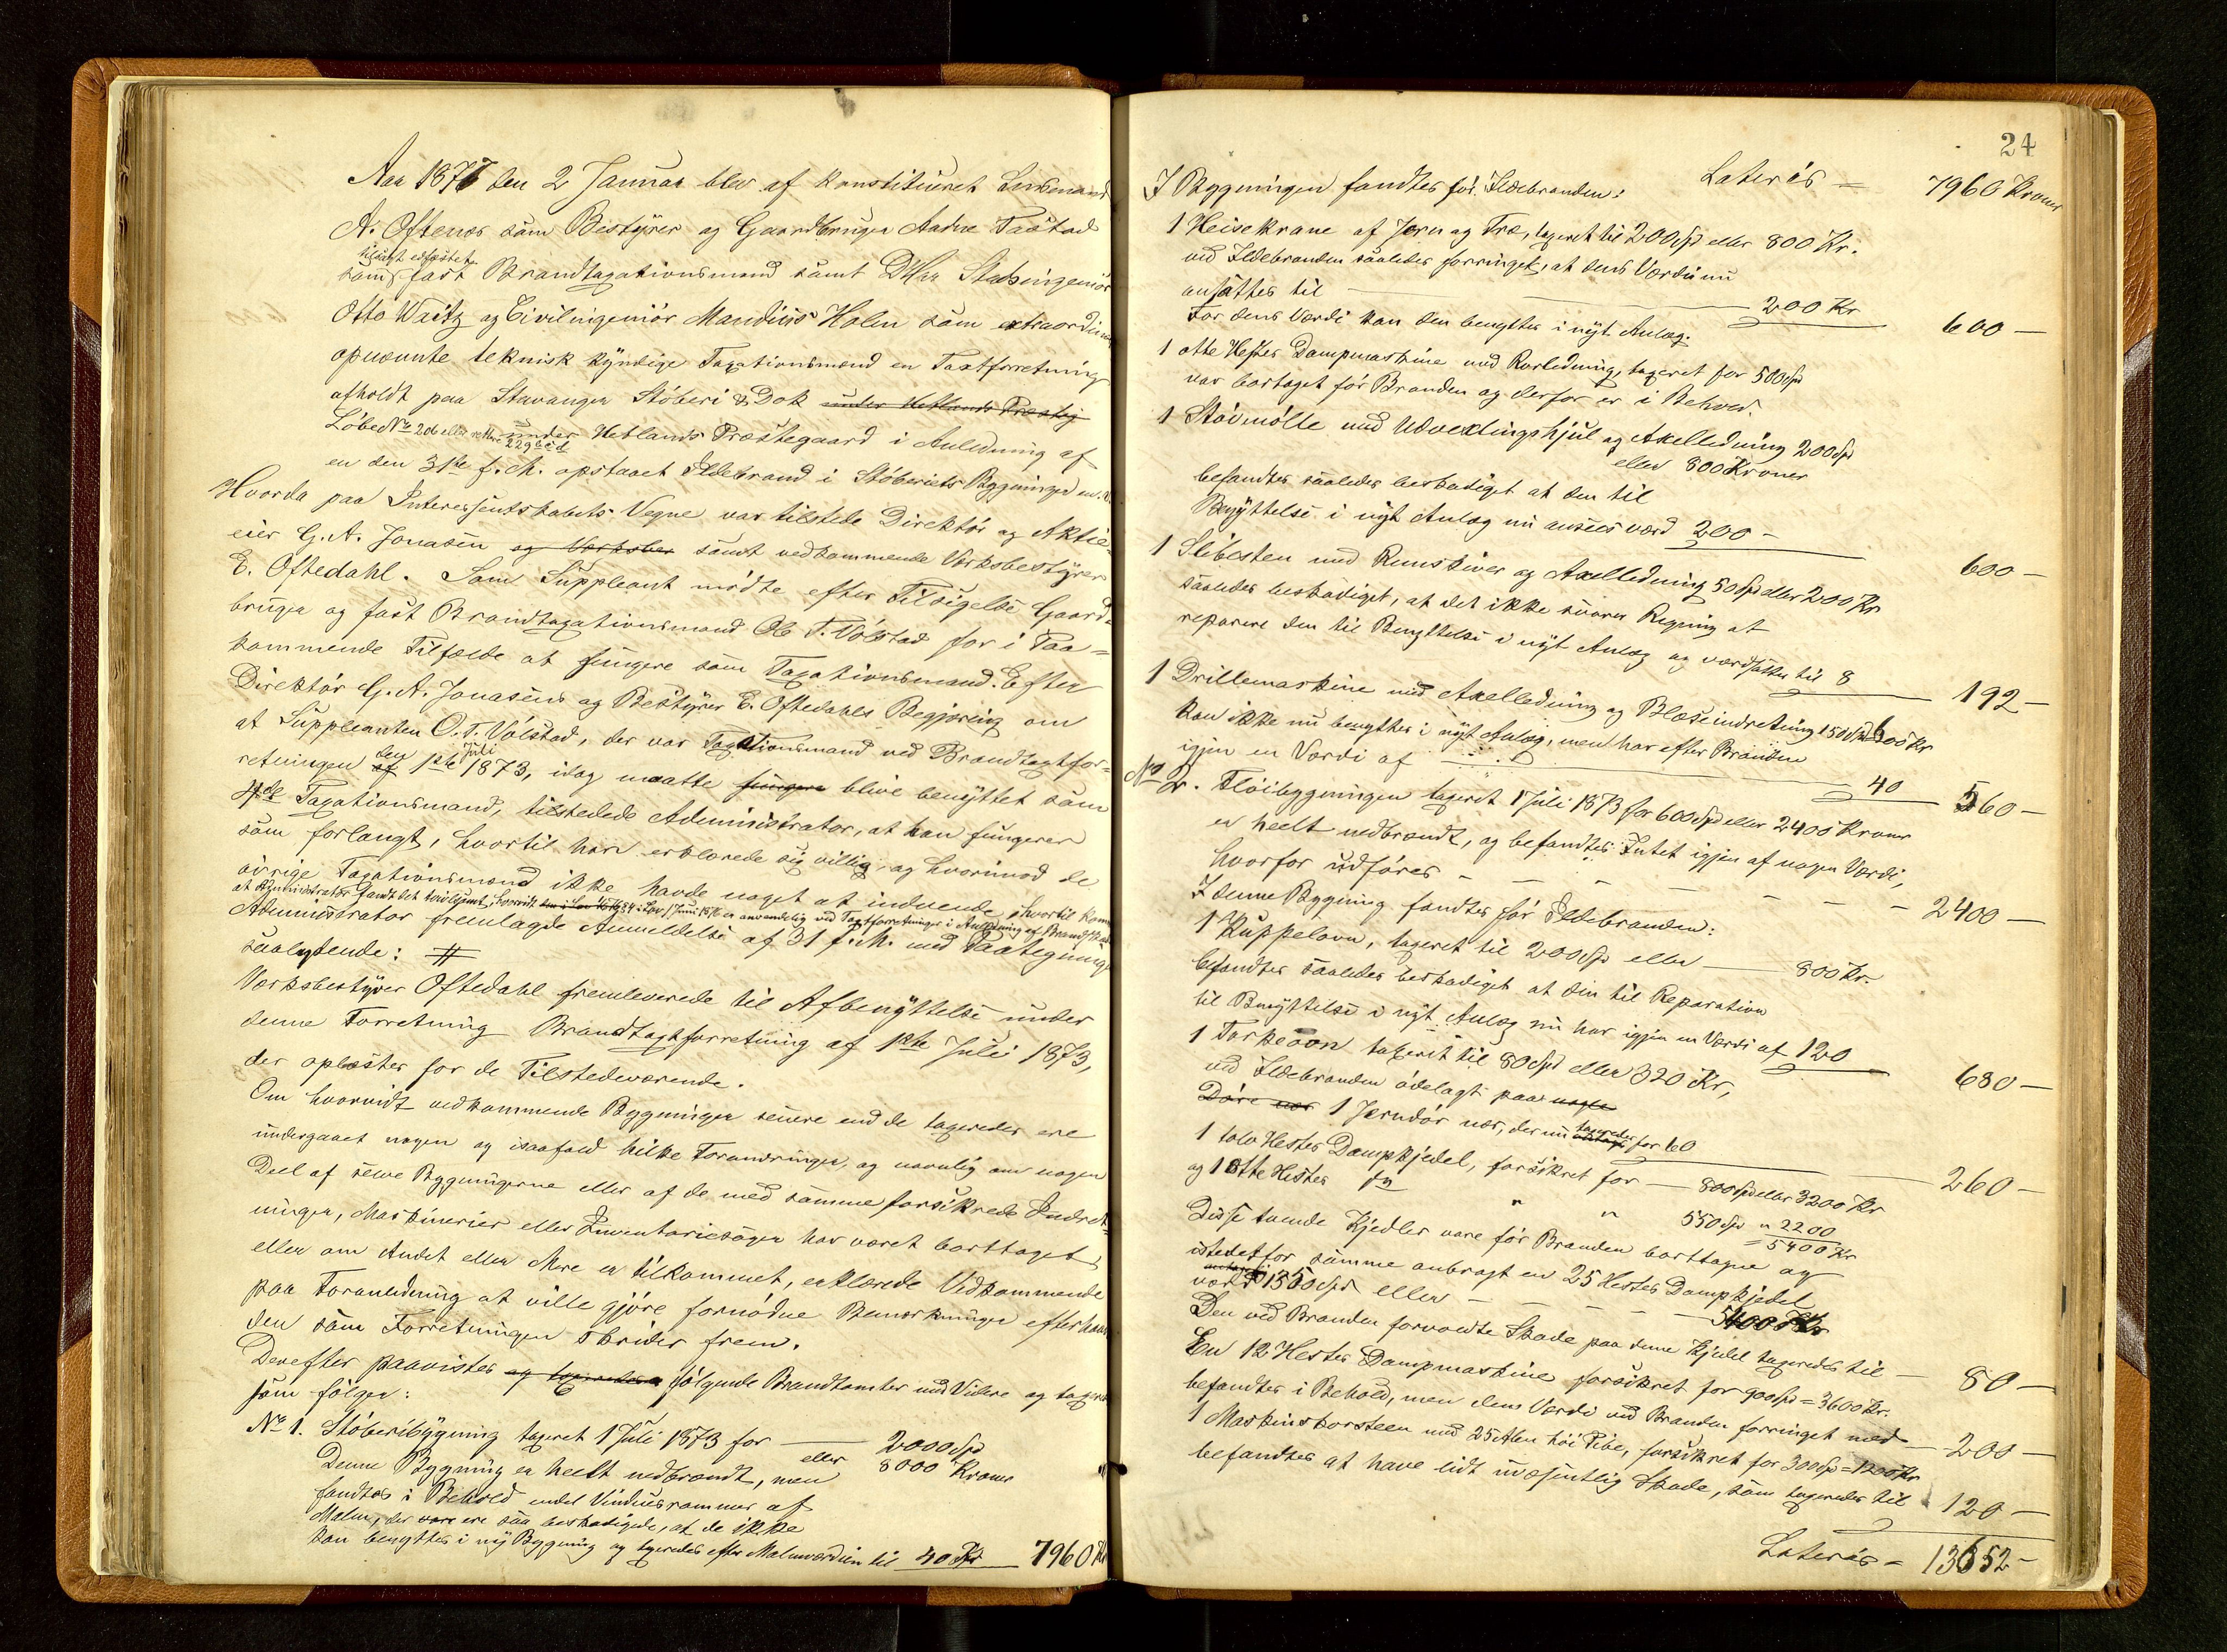 Aar 1877 den 2 Januar blev af konstitueret Lensmand
A. Oftenæs som Bestyrer og Gaardbruger Aadne Tastad
som fast Brandtaxationsmand samt DHrr Stadsingeniør
Otto Waitz og Civilingeniør Mandius Holm som extraordinær
opnævnte teknisk kyndige Taxationsmænd en Taxtforretning
afholdt paa Stavanger Støberi & Dok under Hetlands Præstegj
Løbe No 206 eller rettere 229 under Hetlands Præstegaard i Anledning af
en den 31te f.M. opstaaet Ildebrand i Støberiets Bygninger
Hvorda paa Interessentskabets Vegne var tilstede Direktør og Aktie-
eier G. A. Jonasen og samt vedkommende Værksbestyrer
E. Oftedahl. Som Suppleant mødte efter Tilsigelse Gaard-
bruger og fast Brandtaxationsmand Ole T. Vølstad for i Paa-
kommende Tilfælde at fungere som Taxationsmand. Efter
Direktør G. A. Jonasens og Bestyrer E. Oftedahls Begjæring om
at Suppleanten O. T. Vølstad, der var Taxationsmand ved Brandtaxtfor-
retningen af den 1ste Juli 1873, idag maatte fungere blive benyttet som
4de Taxationsmand, tilstedede Administrator, at han fungerer
som forlangt, hvortil han erklærede sig villig, og hvorimod de
øvrige Taxationsmænd ikke havde noget at indvende, hvortil kom
at Administrator fandt det tvivlsomt, hvorvidt § 4 i Lov 1 Juni er anvendelig ved Taxtforretninger i Anledning af Brandskade
Administrator fremlagde Anmeldelse af 31 f.M. med Paategning
saalydende: #
Værksbestyrer Oftedahl fremleverede til Afbenyttelse under
denne Forretning Brandtaxtforretning af 1ste Juli 1873,
der oplæstes for de Tilstedeværende.
Om hvorvidt vedkommende Bygninger senere end de taxeredes ere
undergaaet nogen og isaafald hvilke Forandringer, og navnlig om nogen
Deel af selve Bygningerne eller af de med samme forsikrede Indret-
ninger, Maskinerier eller Inventariesager har været borttaget,
eller om Andet eller Mere er tilkommet, erklærede Vedkommende
paa Foranledning at ville gjøre fornødne Bemærkninger efterhaan-
den som Forretningen skrider frem.
Derefter paavistes og taxeredes følgende Brandtomter med Videre og taxeret
som følger:
No 1. Støberibygning taxeret 1 Juli 1873 for — 2000 Spd
eller 8000 Kroner
Denne Bygning er heelt nedbrændt, men
fandtes i Behold endel Vinduesrammer af
Malm, der vare ere saa beskadigede, at de ikke
kan benyttes i ny Bygning og taxeredes efter Malmværdien til 40 Kr — 7960 Kr
24
Lateris = 7960 Kroner
I Bygningen fandtes før Ildebranden:
1 Heisekrane af Jern og Træ, taxeret til 200 Spd eller 800 Kr.
ved Ildebranden saaledes forringet, at dens Værdi nu
ansættes til — 200 Kr 600 —
For dens Værdi kan den benyttes i nyt Anlæg.
1 otte Hestes Dampmaskine med Rørledning, taxeret for 500 Spd
var bortaget før Branden og derfor er i Behold.
1 Støvmølle med Udvexlingshjul og Axelledning 200 Spd
eller 800 Kroner
befandtes saaledes beskadiget at den til
Benyttelse i nyt Anlæg nu ansees værd 200 — 600 —
1 Slibesten med Remskiver og Axelledning 50 Spd eller 200 Kr
saaledes beskadiget, at det ikke svarer Regning at
reparere den til Benyttelse i nyt Anlæg og værdsættes til 8 192 —
1 Drillemaskine med Axelledning og Blæseindretning 150 Spd 600 Kr
kan ikke nu benyttes i nyt Anlæg, men har efter Branden
igjen en Værdi af — 40 560 —
No 2. Fløibygningen taxeret 1 Juli 1873 for 600 Spd eller 2400 Kroner
er heelt nedbrændt, og befandtes Intet igjen af nogen Værdi,
hvorfor udføres - - - - - - 2400 —
I denne Bygning fandtes før Ildebranden:
1 Kuppelovn, taxeret til 200 Spd eller — 800 Kr.
befandtes saaledes beskadiget at den til Reparation
til Benyttelse i nyt Anlæg nu har igjen en Værdi af 120 680 —
1 Tørkeovn taxeret til 80 Spd eller 320 Kr,
ved Ildebranden ødelagt paa nogle
Døre nær 1 Jerndør nær, der nu taxeredes for 60 260 —
1 tolv Hestes Dampkjedel, forsikret for — 800 Spd eller 3200 Kr
og 1 otte Hestes do " " 550 Spd " 2200
= 5400 Kr
Disse tvende Kjedler vare før Branden borttagne og
istedetfor samme anbragt en 25 Hestes Dampkjedel
værd 1350 Spd eller - - - - 5400 Kr
Den ved Branden forvoldte Skade paa denne Kjedel taxeredes til — 80 —
En 12 Hestes Dampmaskine forsikret for 900 Spd = 3600 Kr.
befandtes i Behold, men dens Værdi ved Branden forringet med — 200 —
1 Maskinskorsteen med 25 Alen høi Pibe, forsikret for 300 Spd = 1200 Kr
befandtes at have lidt uvæsentlig Skade, som taxeredes til 120 —
Lateris = 13652 —